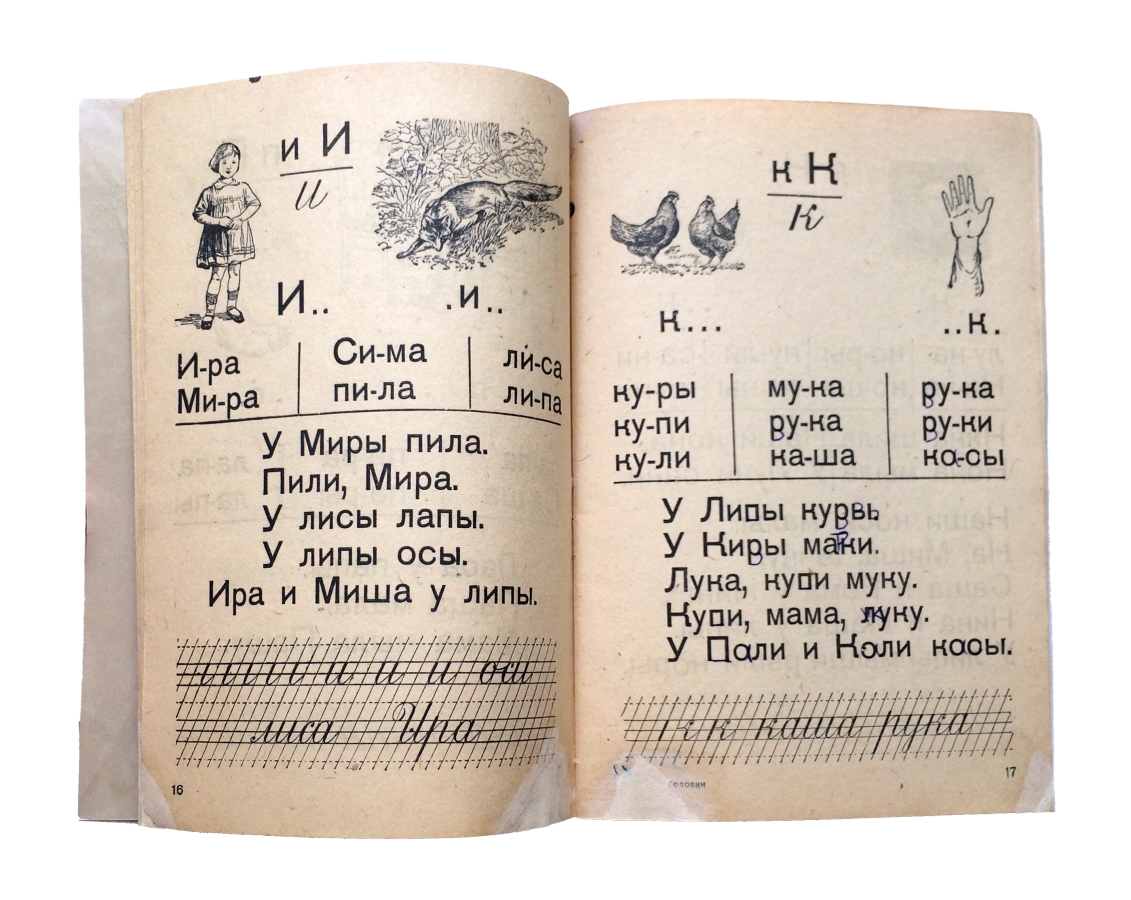 и И
и
И..
.и..
И-ра
Ми-ра
Си-ма
пи-ла
ли-са
ли-па
У Миры пила.
Пили, Мира.
У лисы лапы.
У липы осы.
Ира и Миша у липы.
ı ı ı ı ı и и и оси
лиса Ира
16
к К
к
К...
..к.
ку-ры
ку-пи
ку-ли
му-ка
ру-ка
ка-ша
ру-ка
ру-ки
ко-сы
У Липы куры.
У Киры маки.
Лука, купи муку.
Купи, мама, луку.
У Поли и Коли косы.
к к каша рука
Головин
17